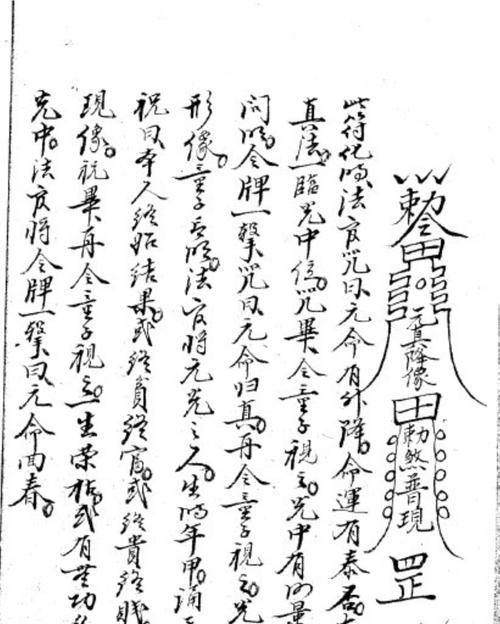 勅令 元真降像 勅煞普現 罡
此符化時法官咒曰元命有升降。命運有泰否。
真法一臨光中位。咒畢令童子視之。光中有何
問時。令牌一擊咒曰元命归真。再令童子視之。光
形像。童子言時。法官將元光之人。生時年甲。誦
祝曰本人終始結果。或終貧終富。或終貴終賤
現像。祝畢再令童子視之。一生榮枯。或有無功
光中。法官將令牌一擊曰元命回春。